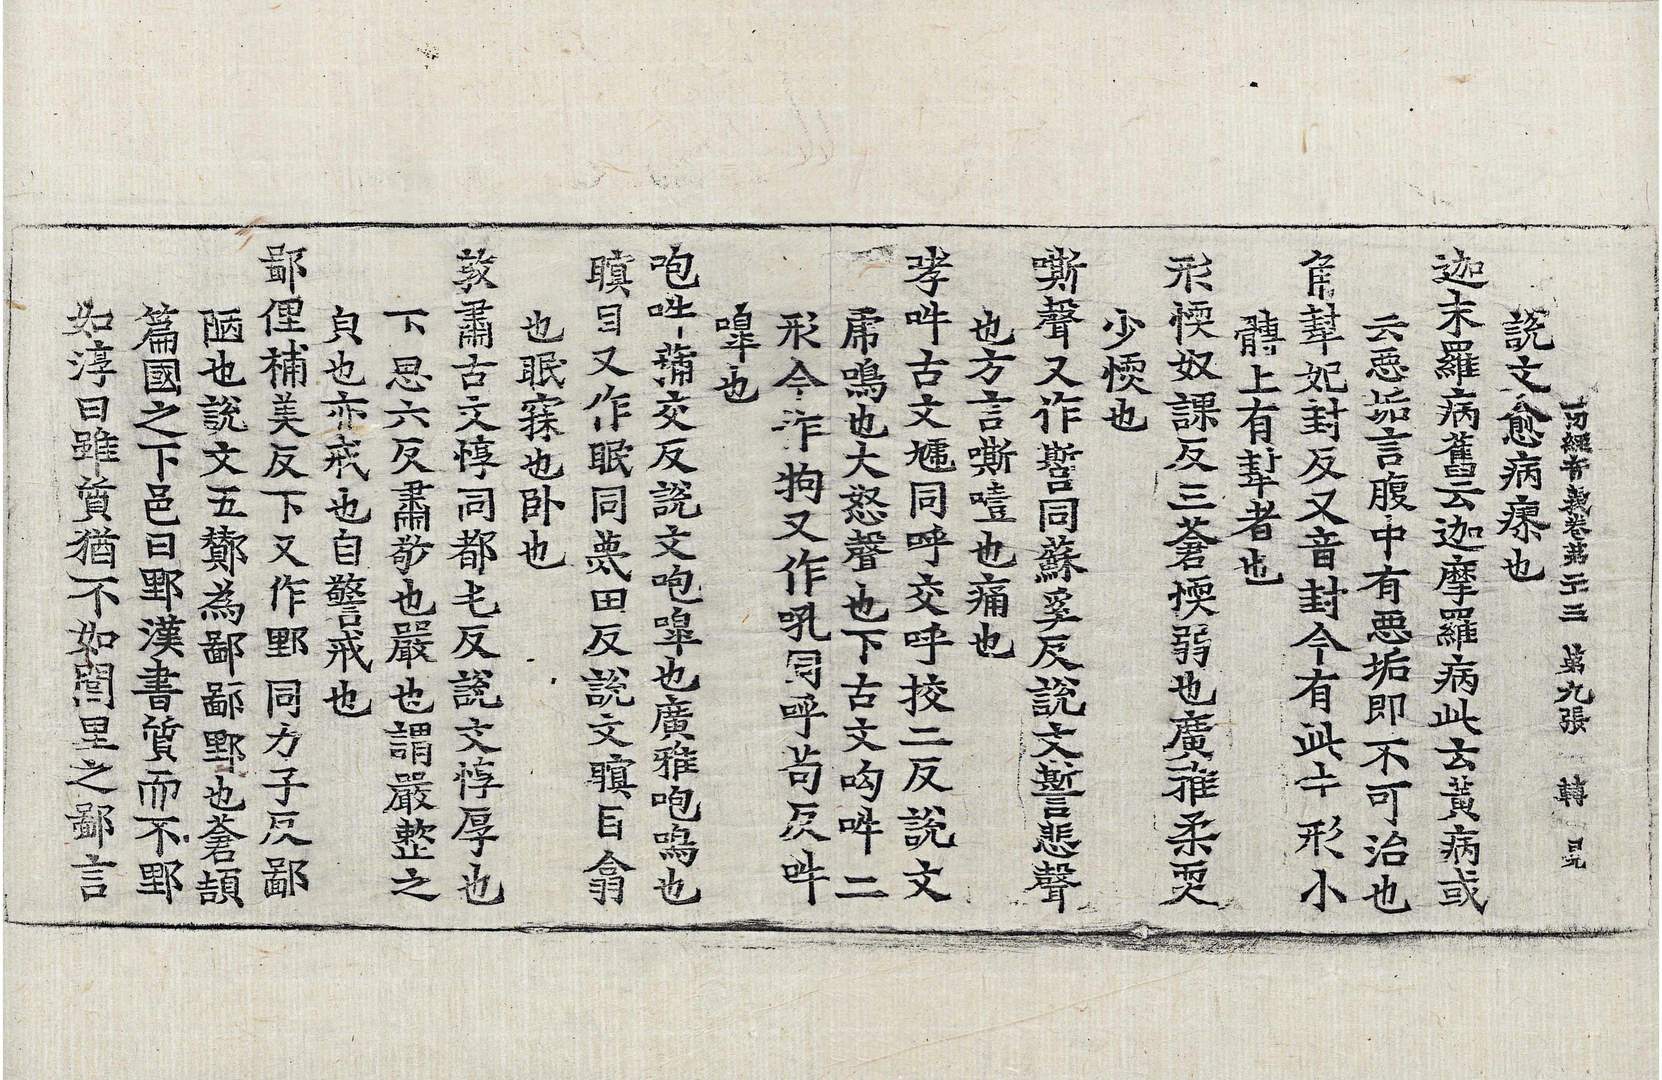 一切經音義卷第二十三　第九張　轉　晃
說文愈病瘳也
迦末羅病舊云迦摩羅病此云黃病或
云惡垢言腹中有惡垢即不可治也
犎妃封反又音封今有此牛形小
髆上有犎者也
形㥓奴課反三蒼㥓弱也廣雅柔耎
少㥓也
嘶聲又作誓同蘇奚反說文誓悲聲
也方言嘶噎也痛也
哮吽古文虓同呼交呼挍二反說文
虎鳴也大怒聲也下古文呴吽二
形今作拘又作吼同呼茍反吽
嘷也
咆吽蒲交反說文咆嘷也廣雅咆鳴也
瞋目又作眠同莫田反說文瞋目翕
也眠寐也臥也
敦肅古文惇同都屯反說文惇厚也
下思六反肅敬也嚴也謂嚴整之
皃也亦戒也自警戒也
鄙俚補美反下又作野同力子反鄙
陋也說文五酇為鄙鄙野也蒼頡
篇國之下邑曰野漢書質而不野
如淳曰雖質猶不如閭里之鄙言